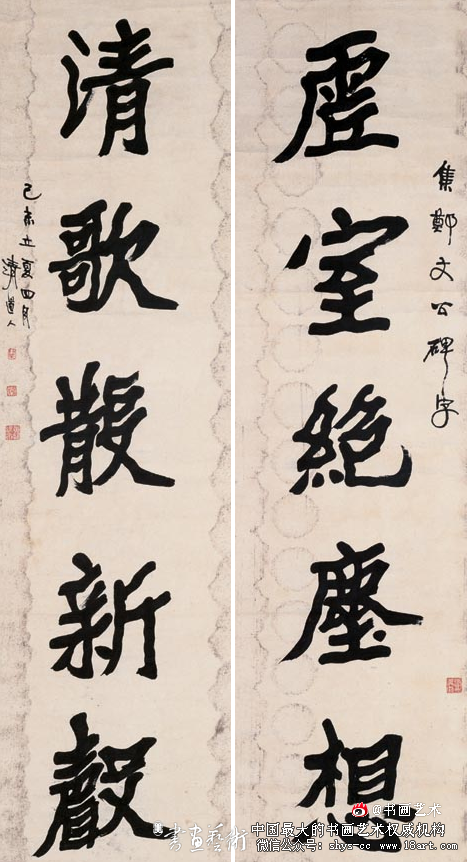 集鄭文公碑字
虛室絕塵想
清歌散新聲
己未立夏四月
清道人
@书画艺术
書画藝術
中国最大的书画艺术权威机构
微信公众号：shys-cc www.18art.com